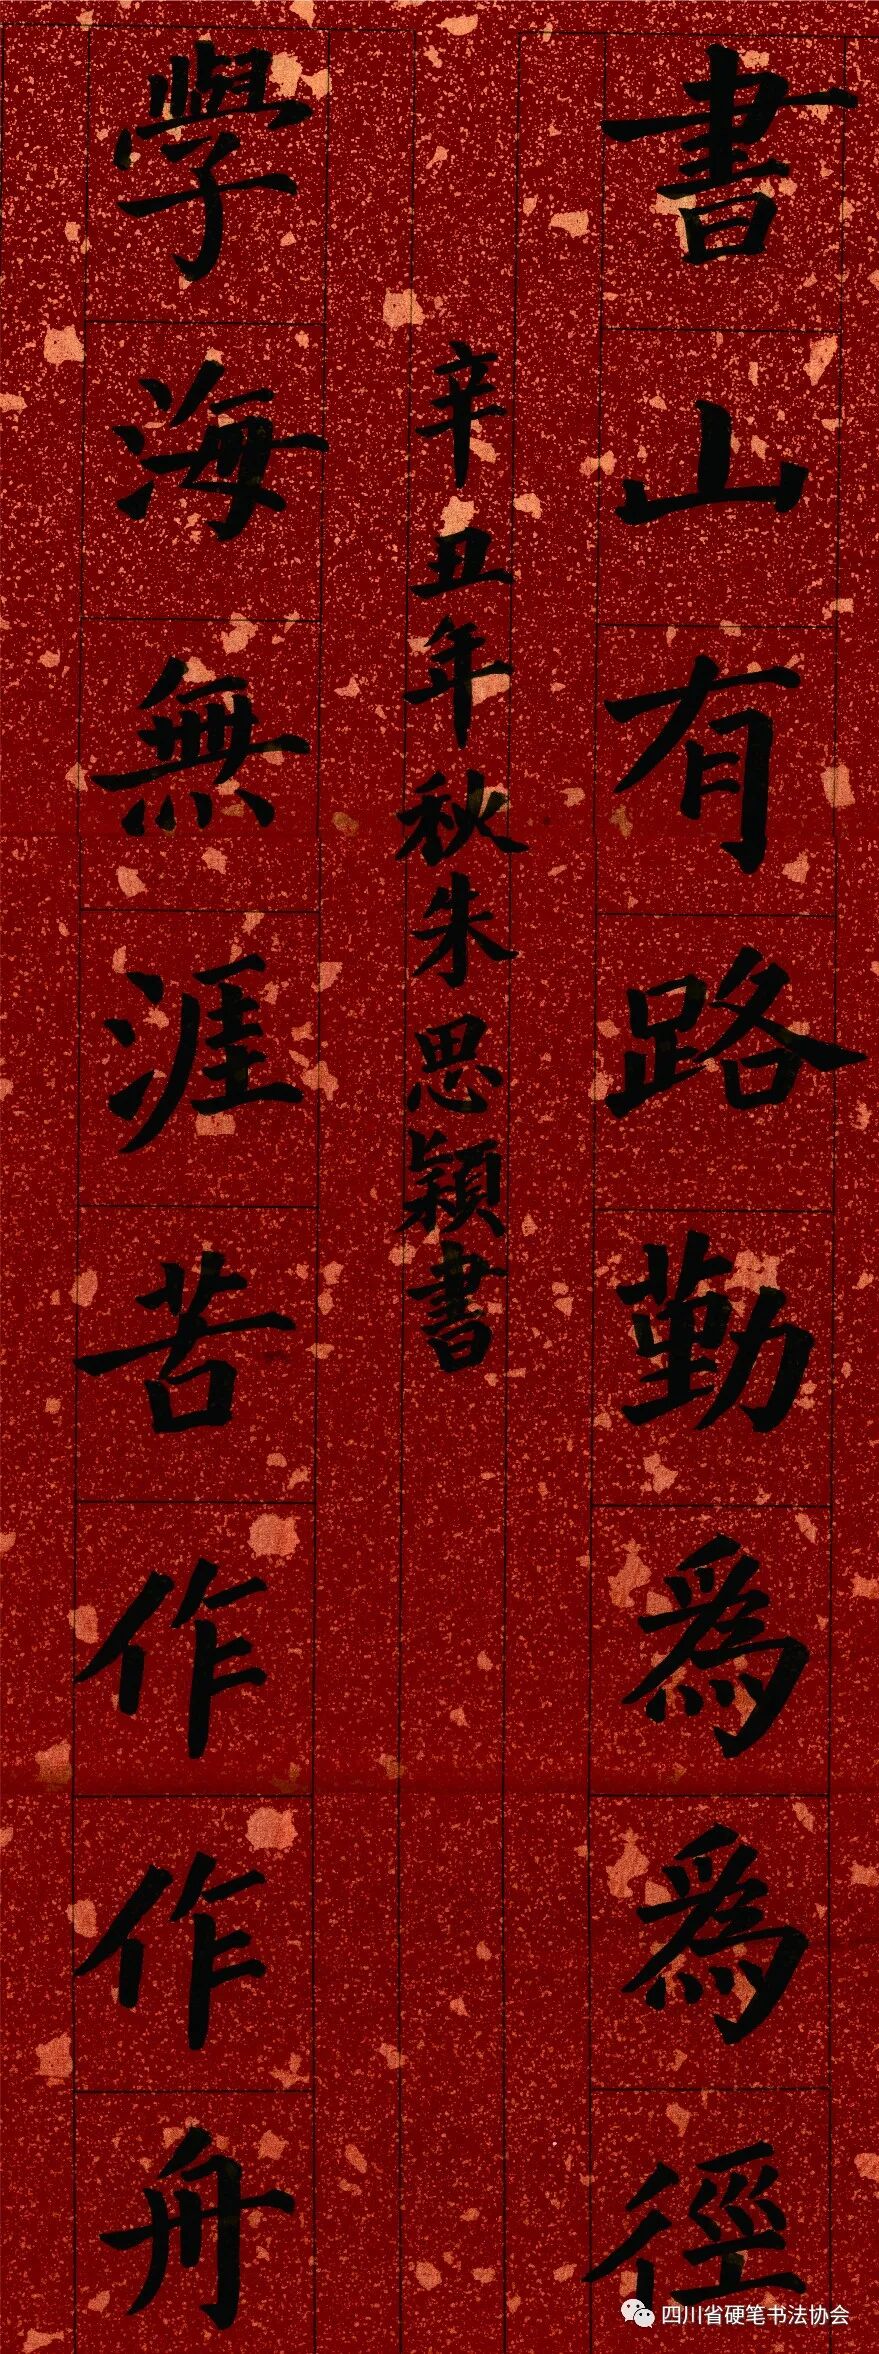 書山有路勤為為徑
辛丑年秋朱思穎書
學海無涯苦作作舟
四川省硬笔书法协会